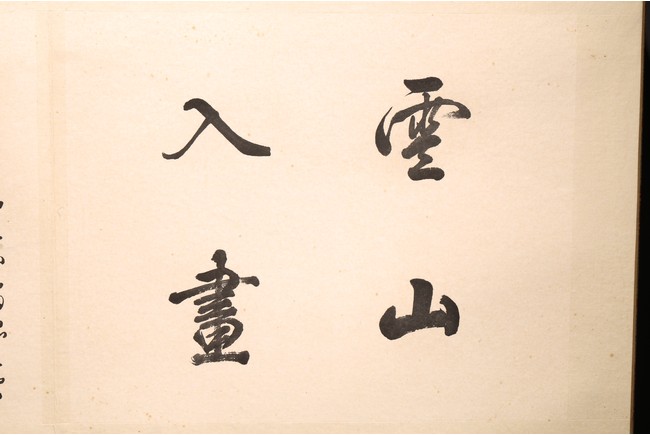 雲山
入畫